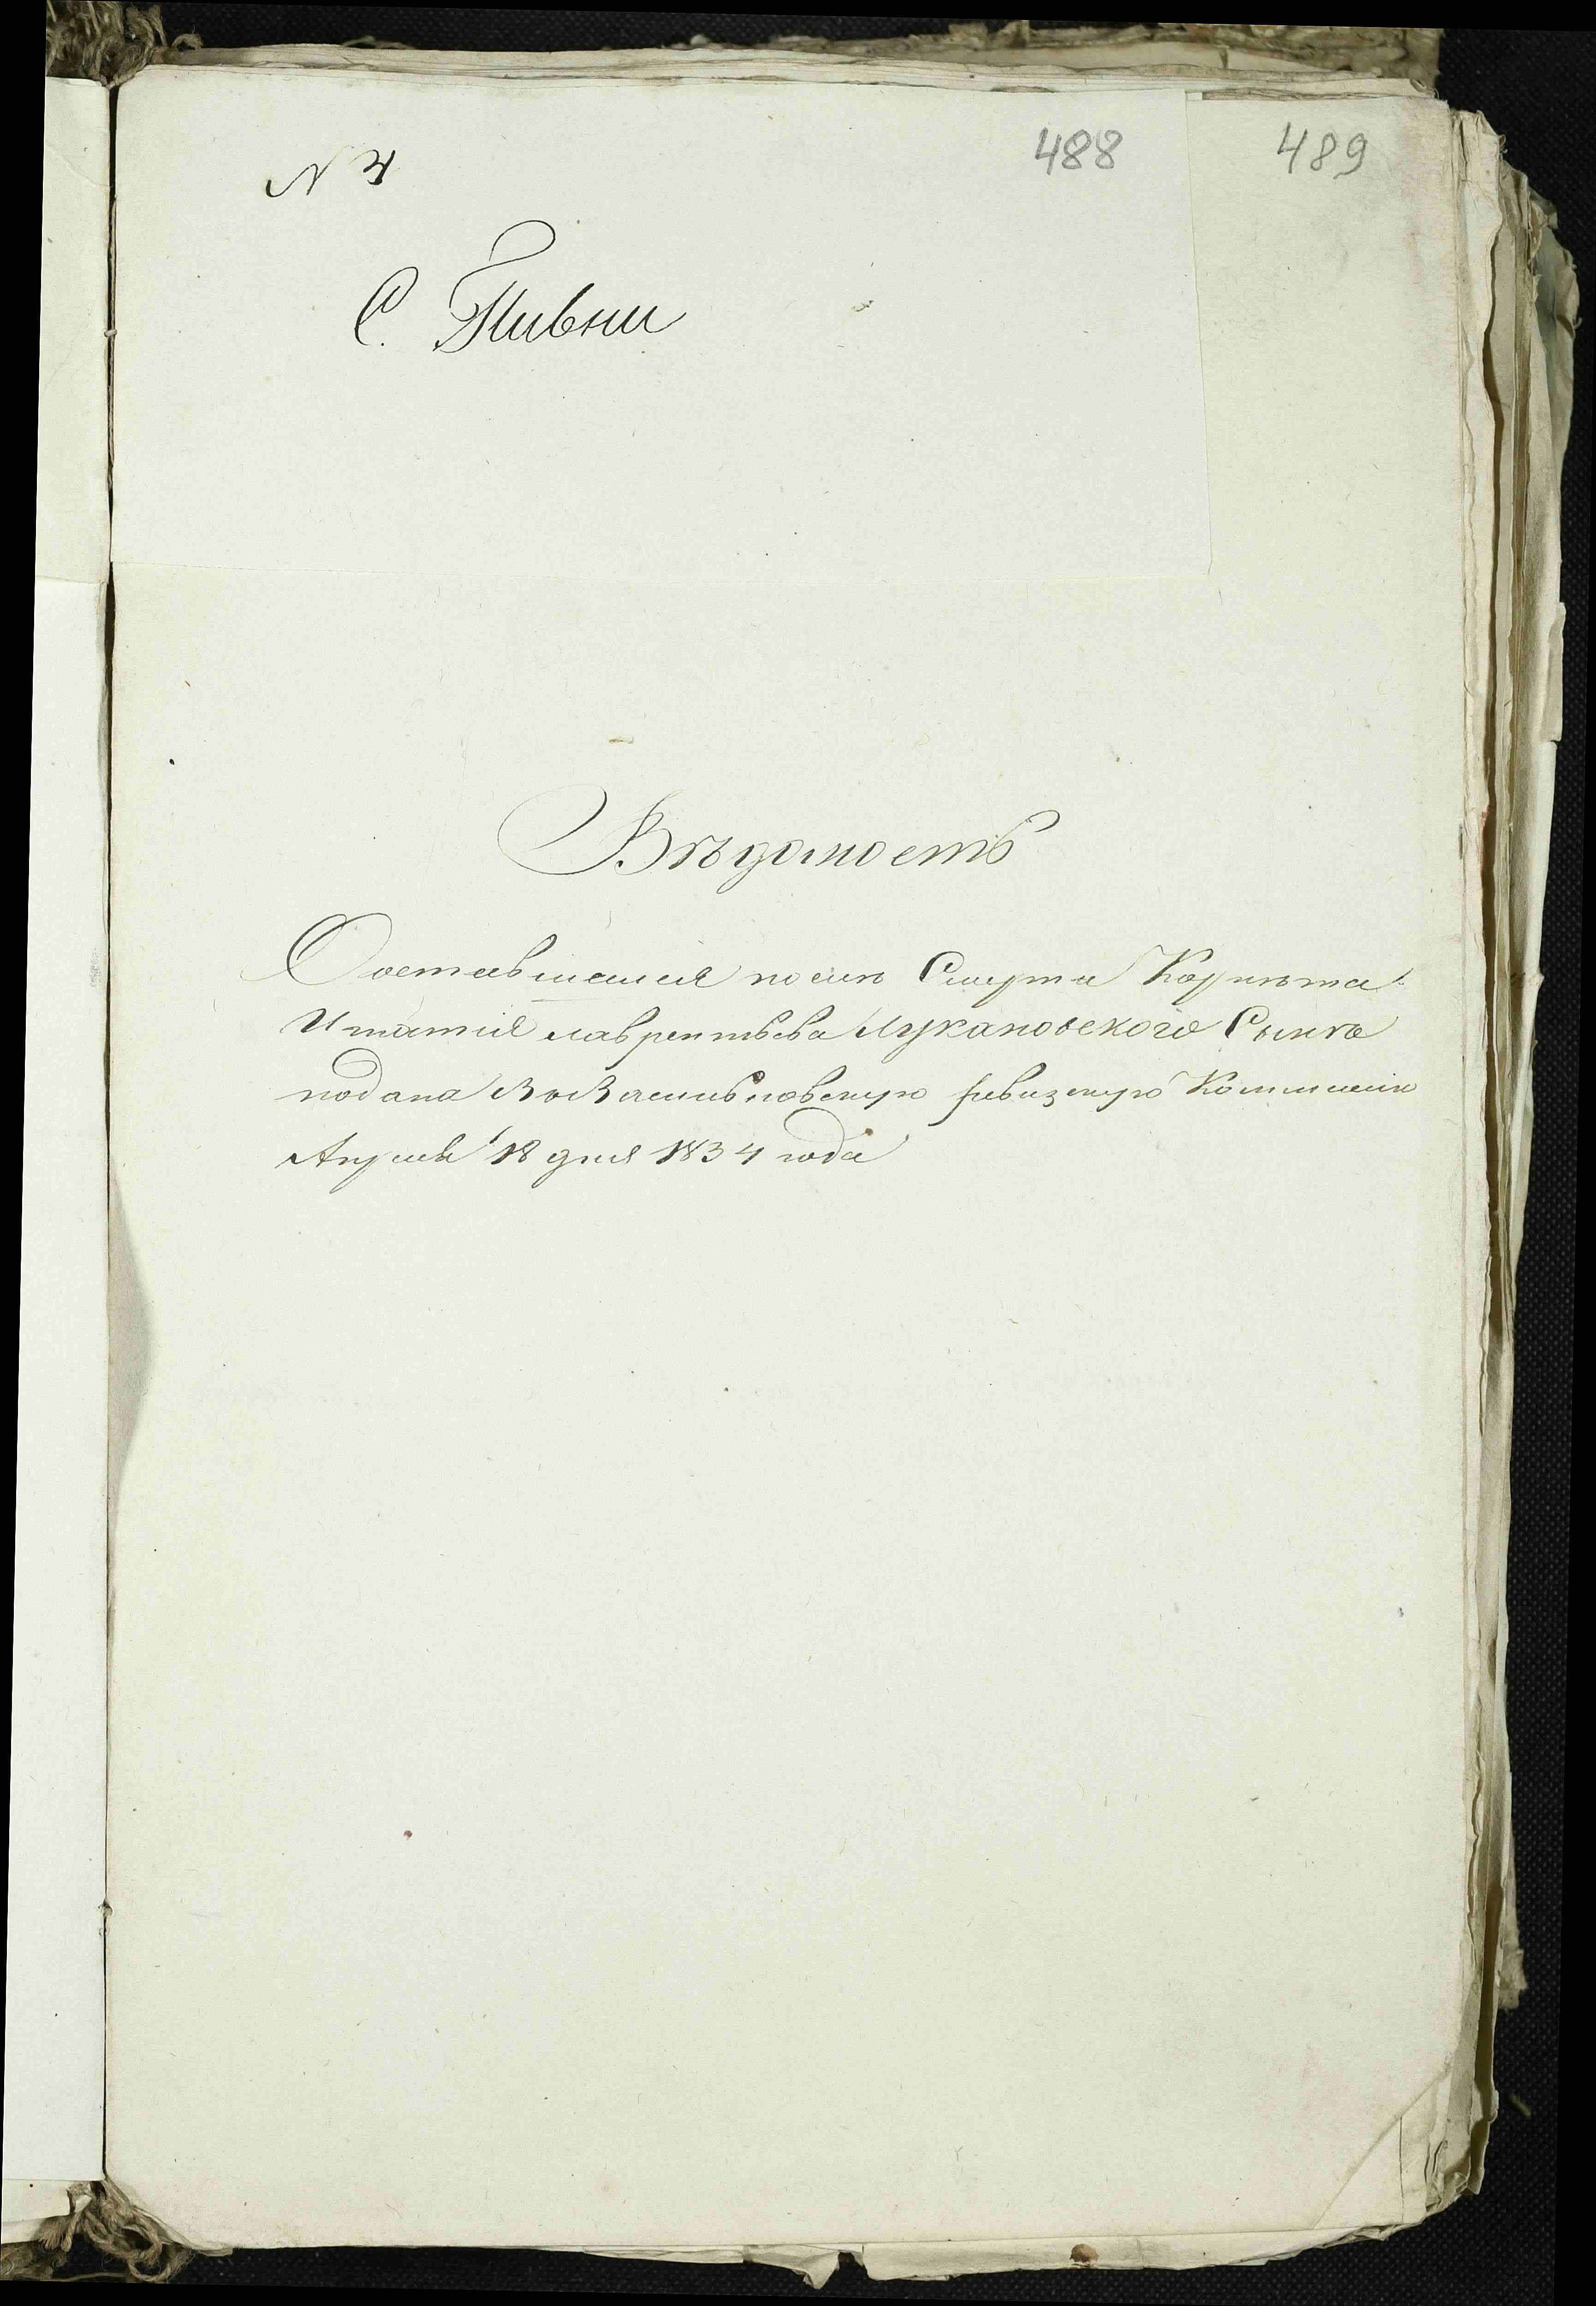 N 4
488
489
С. Пивни
Вѣдомость
Ооставшемся после Смерти Корнета
Игнатия лаврентьева Лукановского Сынѣ
подана Во Васильковскую ревизскую Коммисию
Апреля 18 дня 1834 года